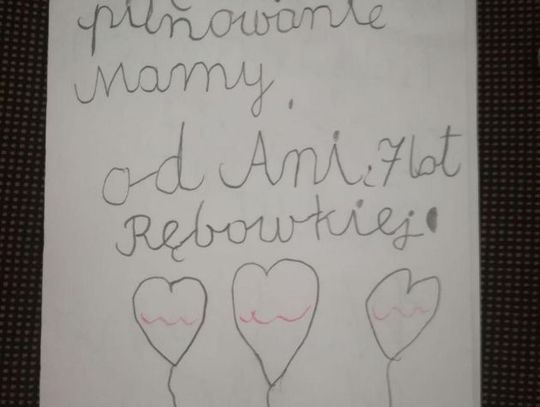 pilnowanie
Mamy.
od Ani, 7 lat
Rębowkiej